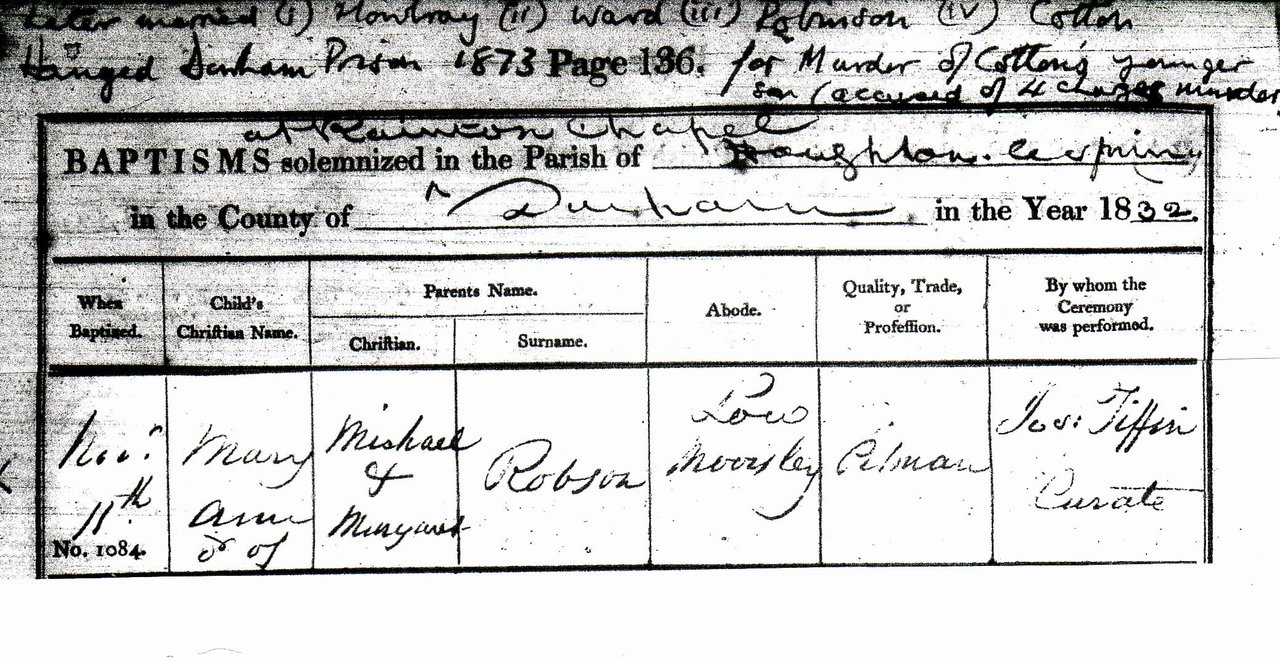 Later married (i) Mowbray (ii) Ward (iii) Robinson (iv) Cotton
Hanged Durham Prison 1873 Page 136. for Murder of Cotton's younger
son (accused of 4 charges murder
at Rainton Chapel
BAPTISMS solemnized in the Parish of Houghton-le-Spring
in the County of Durham in the Year 1832.
When Baptized.
Child's Christian Name.
Parents Name.
Christian.
Surname.
Abode.
Quality, Trade, or Profession.
By whom the Ceremony was performed.
Novr. 11th
No. 1084.
Mary Ann d of
Michael & Margaret
Robson
Low Moorsley
Pitman
Jos: Tiffin Curate